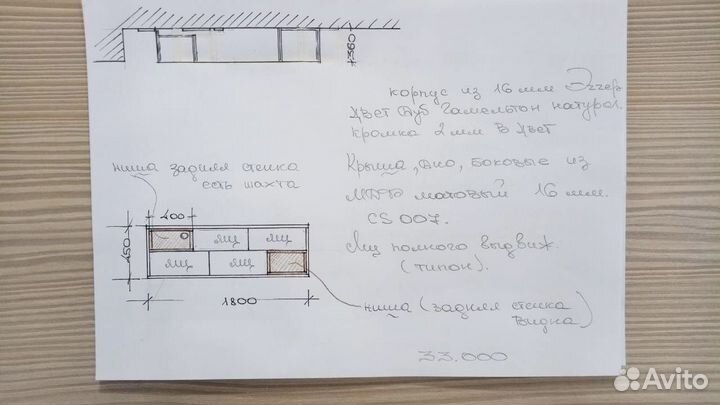 360
корпус из 16 мм Эггер
Цвет Дуб Гамельтон натурал.
кромка 2 мм в цвет
ниша задняя стенка
есть шахта
Крыша, дно, боковые из
МДФ матовый 16 мм.
CS 007.
Ящ полного выдвиж.
(типон).
400
450
ящ ящ
ящ ящ
1800
ниша (задняя стенка
видна)
33.000
Avito